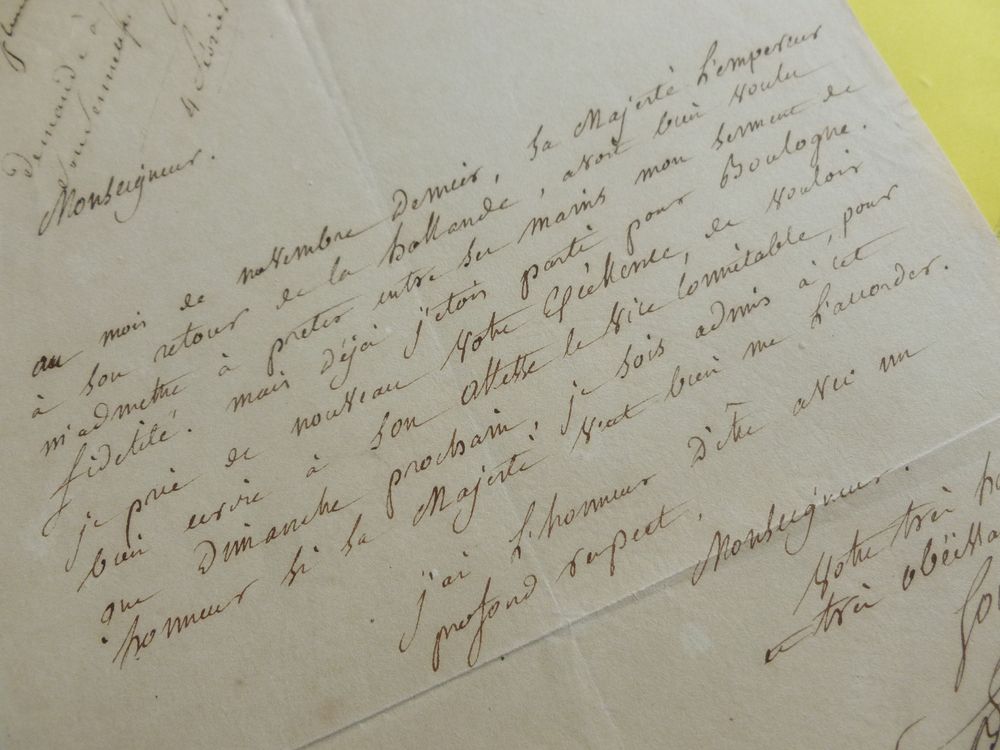 demandé à
son serment
4 février
Monseigneur.
au mois de novembre dernier, Sa Majesté L'empereur
à son retour de la hollande, avoit bien voulu
m'admettre à preter entre ses mains mon serment de
fidelité. mais déjà j'etois parti pour Boulogne.
je prie de nouveau Votre Excellence, de vouloir
bien ecrire à Son Altesse le Vice Connétable, pour
que Dimanche prochain, je sois admis à cet
honneur si Sa Majesté veut bien me l'accorder.
j'ai L'honneur d'être avec un
profond respect,
Monseigneur.
Votre très
et très obéissa